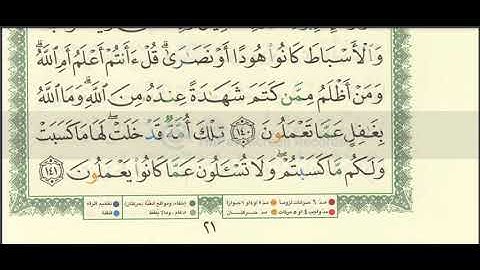 وَالْأَسْبَاطَ كَانُوا هُودًا أَوْ نَصَارَىٰ ۗ قُلْ ءَأَنتُمْ أَعْلَمُ أَمِ اللَّهُ ۗ
وَمَنْ أَظْلَمُ مِمَّن كَتَمَ شَهَادَةً عِندَهُ مِنَ اللَّهِ ۗ وَمَا اللَّهُ
بِغَافِلٍ عَمَّا تَعْمَلُونَ ١٤٠ تِلْكَ أُمَّةٌ قَدْ خَلَتْ ۖ لَهَا مَا كَسَبَتْ
وَلَكُم مَّا كَسَبْتُمْ ۖ وَلَا تُسْـَٔلُونَ عَمَّا كَانُوا يَعْمَلُونَ ١٤١
٢١